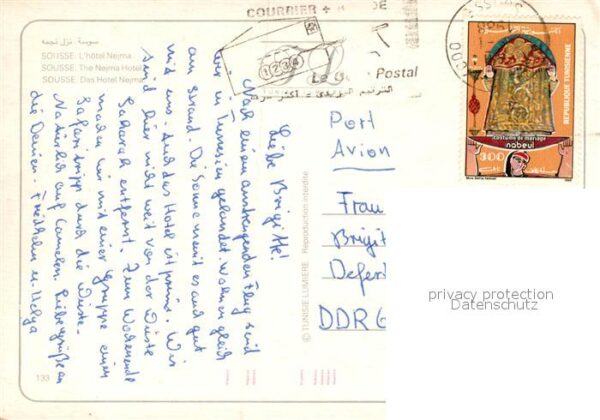 COURRIER +
سوسة نزل نجمة
SOUSSE. L'hôtel Nejma
SOUSSE. The Nejma Hotel
SOUSSE. Das Hotel Nejma
1234
Le Postal
الترقيم البريدي = أكثر
SOUSSE PORT
REPUBLIQUE TUNISIENNE
costume de mariage
nabeul
300
Port
Avion
Frau
Brigit
Defert
DDR
Liebe Brigitte!
Nach einem anstrengenden Flug sind
wir in Tunesien gelandet. Wohnen gleich
am Strand. Die Sonne meint es auch gut
mit uns. Auch das Hotel ist prima. Wir
sind hier nicht weit von der Wüste
Sahara entfernt. Zum Wochenende
machen wir mit einer Gruppe einen
Safaritripp durch die Wüste.
Natürlich auf Camelen. Liebe Grüße an
die Damen. Friedhelm u. Helga
© TUNISIE LUMIERE Reproduction interdite
133
privacy protection
Datenschutz